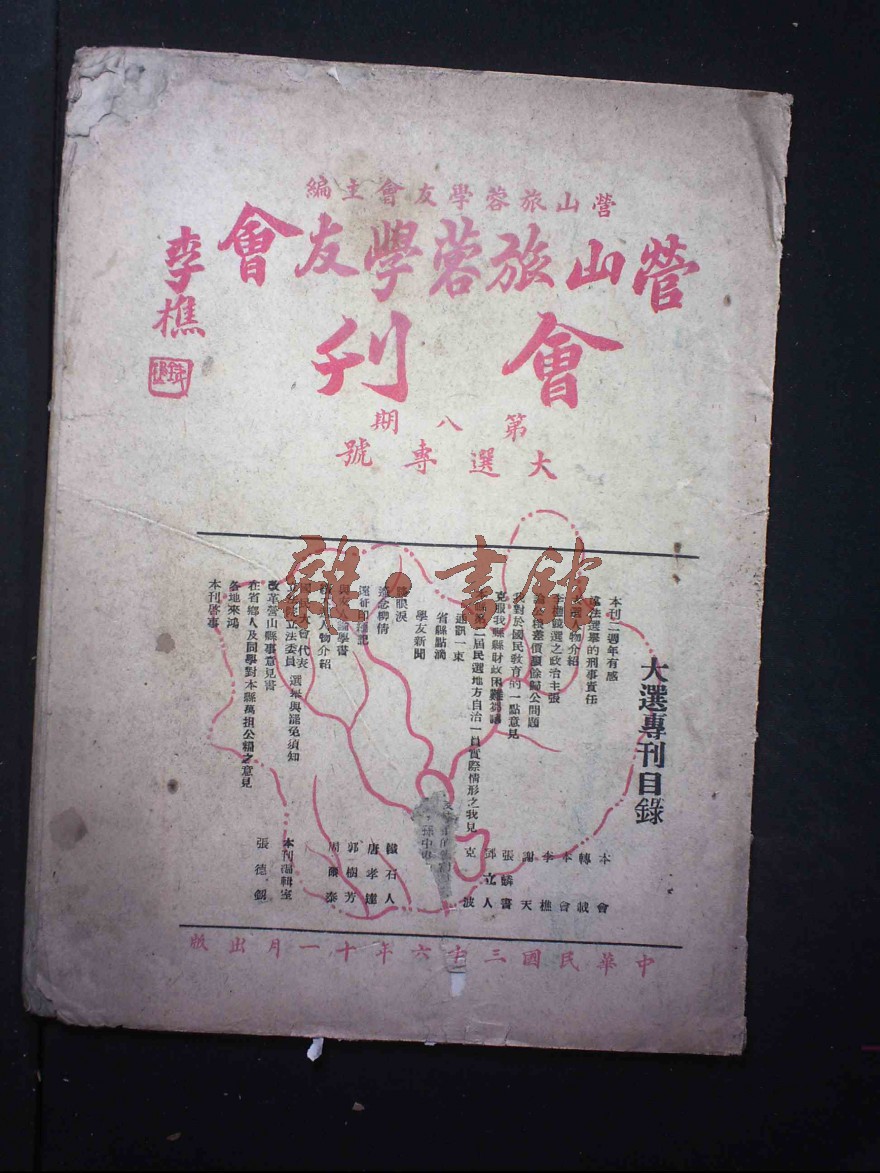 營山旅蓉學友會主編
營山旅蓉學友會
會刊
李樵
第八期
大選專號
雜·書館
大選專刊目錄
本刊二週年有感
選舉的刑事責任
人物介紹
競選之政治主張
價額餘歸公問題
我對於國民教育的一點意見
克服我縣縣財政困難芻議
本縣第二屆民選地方自治一員實際情形之我見
通訊一束
省縣點滴
學友新聞
眼淚
念柳倩
遠征印緬記
論學書
人物介紹
國民大會代表
立法委員 選舉與罷免須知
改革營山縣事意見書
在省鄉人及同學對本縣萬担公糧之意見
各地來鴻
本刊啓事
本會
轉載
本會
李樵
謝天
張麟書
鄧立人
克波
鐵石人
唐孝達
郭樹芳
周康泰
本刊編輯室
張德錫
中華民國三十六年十一月出版